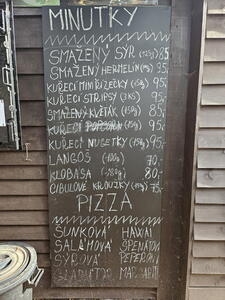 MINUTKY
SMAŽENÝ SÝR (125g) 85,-
SMAŽENÝ HERMELÍN 95,-
KUŘECÍ MINIŘÍZEČKY (150g) 95,-
KUŘECÍ STRIPSY (3KS) 95,-
SMAŽENÝ KVĚTÁK (150g) 85,-
KUŘECÍ POPCORN (150g) 95,-
KUŘECÍ NUGETKY (150g) 95,-
LANGOŠ 70,-
KLOBÁSA 80,-
CIBULOVÉ KROUŽKY 75,-
PIZZA
ŠUNKOVÁ HAWAI
SALÁMOVÁ ŠPENÁTOVÁ
SÝROVÁ PEPERONI